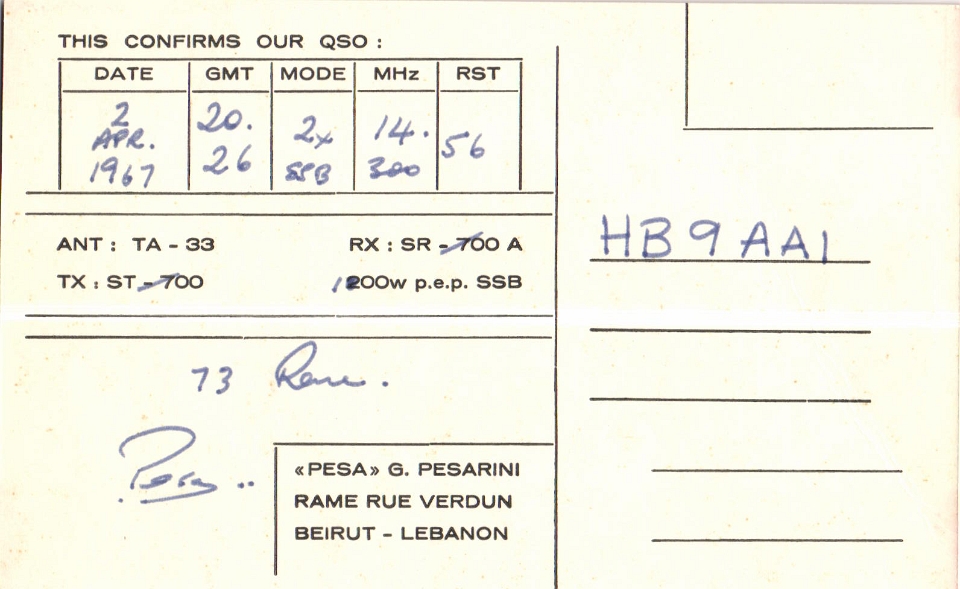 THIS CONFIRMS OUR QSO :
DATE GMT MODE MHz RST
2 APR. 1967 20. 26 2x SSB 14. 300 56
ANT : TA - 33 RX : SR - 700 A
TX : ST - 700 1200w p.e.p. SSB
73
Pesa ..
«PESA» G. PESARINI
RAME RUE VERDUN
BEIRUT - LEBANON
HB9AAI